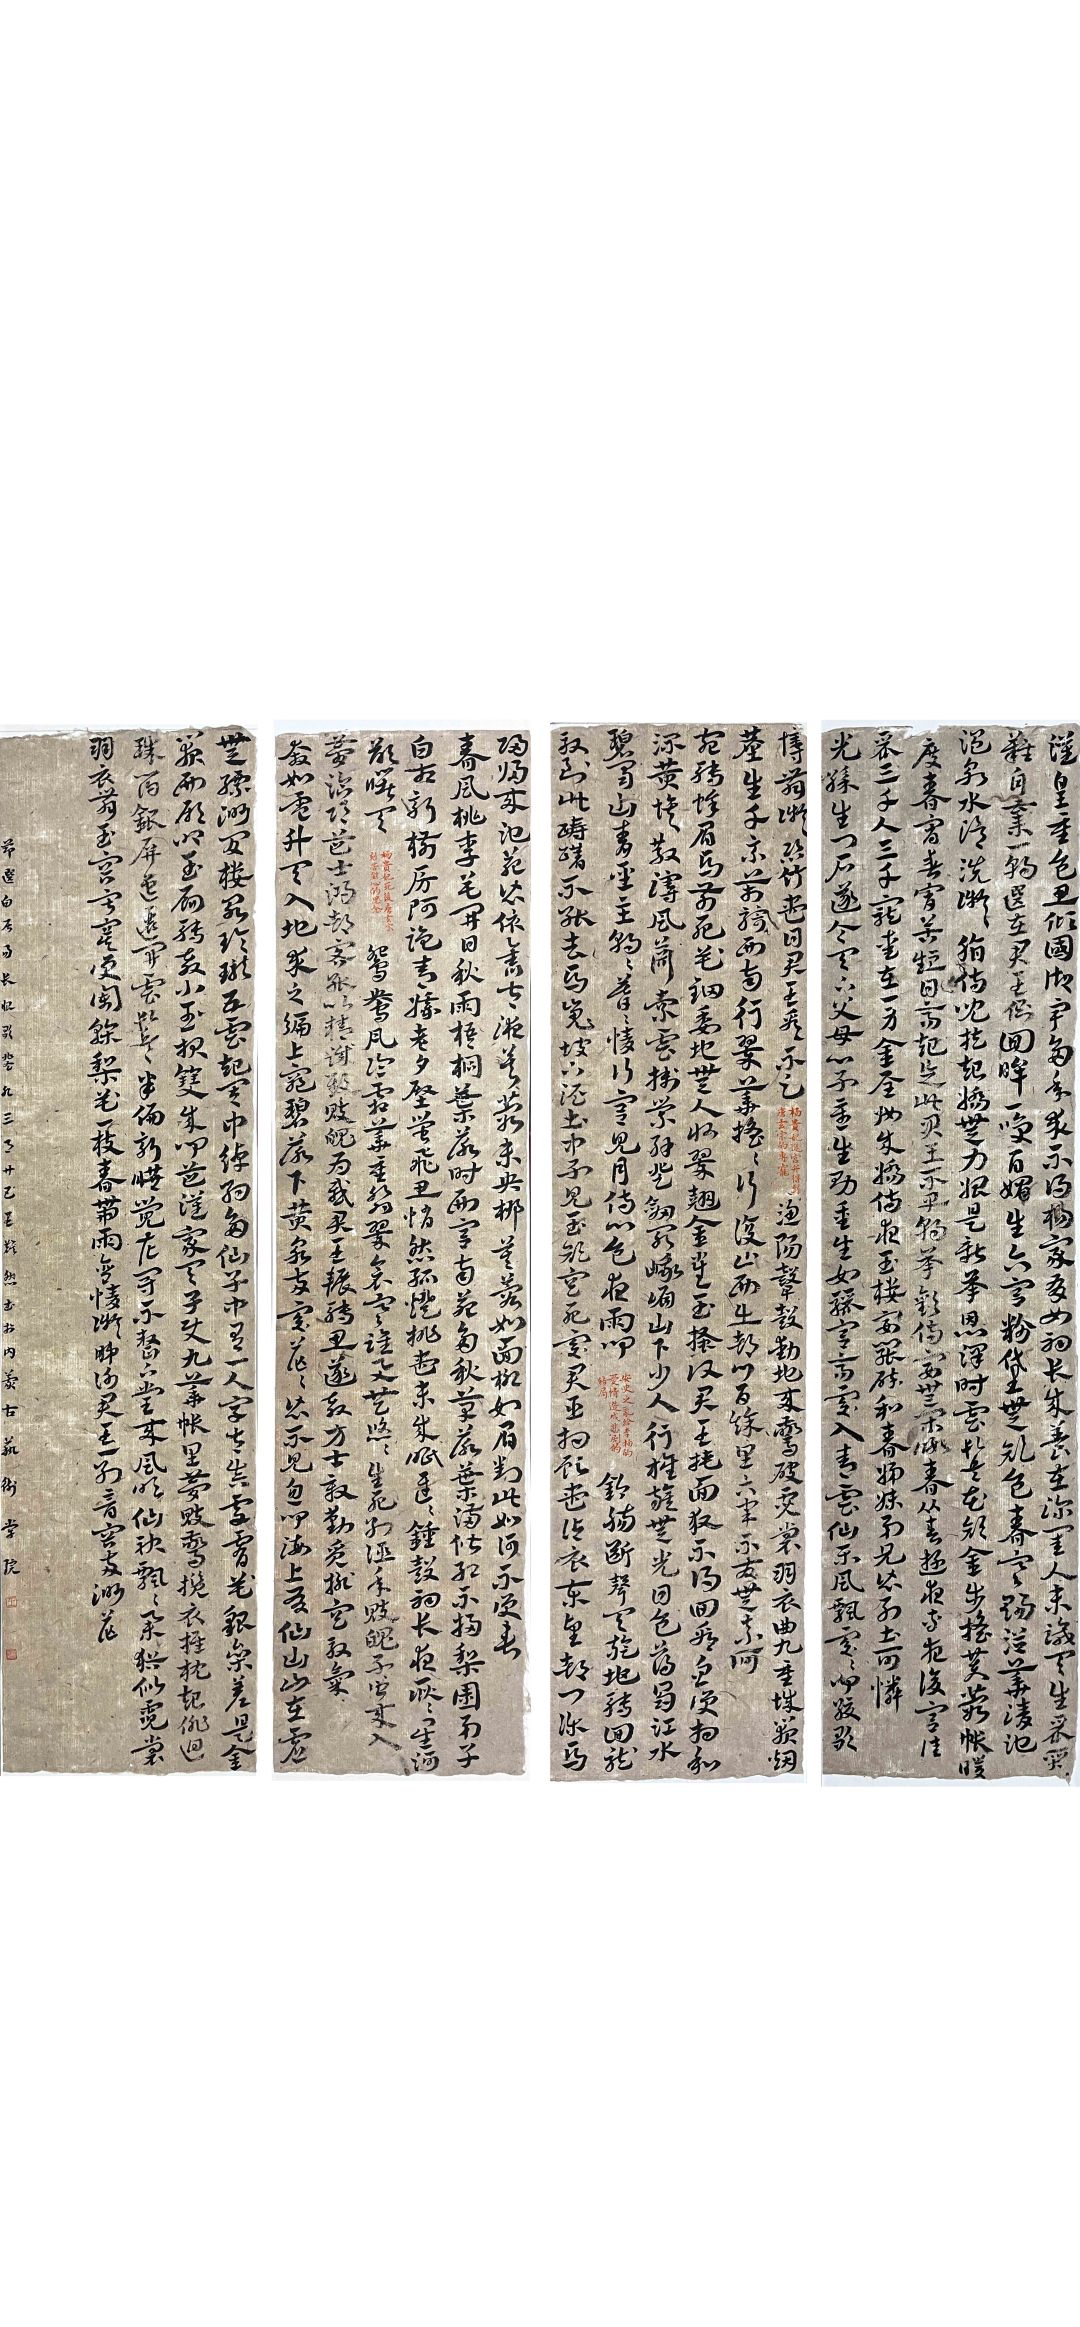 漢皇重色思傾國御宇多年求不得楊家有女初長成養在深閨人未識天生麗
難自棄一朝選在君王側回眸一笑百媚生六宮粉黛無顏色春寒賜浴華清池
溫泉水滑洗凝脂侍兒扶起嬌無力始是新承恩澤時雲鬢花顏金步搖芙蓉帳暖
度春宵春宵苦短日高起從此君王不早朝承歡侍宴無閑暇春從春遊夜專夜後宮佳
麗三千人三千寵愛在一身金屋妝成嬌侍夜玉樓宴罷醉和春姊妹弟兄皆列土可憐
光彩生門戶遂令天下父母心不重生男重生女驪宮高處入青雲仙樂風飄處處聞緩歌
慢舞凝絲竹盡日君王看不足
楊貴妃從宮中得到
唐玄宗的專寵
漁陽鼙鼓動地來驚破霓裳羽衣曲九重城闕煙
塵生千乘萬騎西南行翠華搖搖行復止西出都門百餘里六軍不發無奈何
宛轉蛾眉馬前死花鈿委地無人收翠翹金雀玉搔頭君王掩面救不得回看血淚相和
流黃埃散漫風蕭索雲棧縈紆登劍閣峨嵋山下少人行旌旗無光日色薄蜀江水
碧蜀山青聖主朝朝暮暮情行宮見月傷心色夜雨聞
安史之亂給李楊的
愛情造成悲劇的
結局
鈴腸斷聲天旋地轉回龍
馭到此躊躇不能去馬嵬坡下泥土中不見玉顏空死處君臣相顧盡沾衣東望都門信馬
歸歸來池苑皆依舊太液芙蓉未央柳芙蓉如面柳如眉對此如何不淚垂
春風桃李花開日秋雨梧桐葉落時西宮南苑多秋草落葉滿階紅不掃梨園弟子
白髮新椒房阿監青娥老夕殿螢飛思悄然孤燈挑盡未成眠遲遲鐘鼓初長夜耿耿星河
欲曙天
楊貴妃死後唐玄宗
鴛鴦瓦冷霜華重翡翠衾寒誰與共悠悠生死別經年魂魄不曾來入
夢臨邛道士鴻都客能以精誠致魂魄為感君王輾轉思遂教方士殷勤覓排空馭氣
奔如電升天入地求之遍上窮碧落下黃泉兩處茫茫皆不見忽聞海上有仙山山在虛
無縹緲間樓閣玲瓏五雲起其中綽約多仙子中有一人字太真雪膚花貌參差是金
闕西廂叩玉扃轉教小玉報雙成聞道漢家天子使九華帳里夢魂驚攬衣推枕起徘徊
珠箔銀屏迤邐開雲鬢半偏新睡覺花冠不整下堂來風吹仙袂飄飄舉猶似霓裳
羽衣舞玉容寂寞淚闌干梨花一枝春帶雨含情凝睇謝君王一別音容兩渺茫
節選白居易長恨歌 三月廿 然書於內蒙古藝術學院